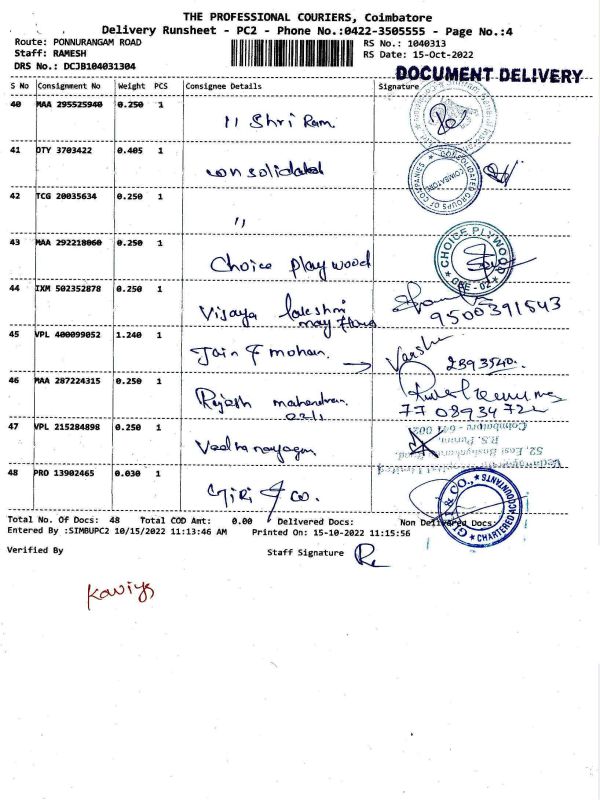 THE PROFESSIONAL COURIERS, Coimbatore
Delivery Runsheet - PC2 - Phone No.:0422-3505555 - Page No.:4
Route: PONNURANGAM ROAD RS No.: 1040313
Staff: RAMESH RS Date: 15-Oct-2022
DRS No.: DCJB104031304
DOCUMENT DELIVERY
S No Consignment No Weight PCS Consignee Details Signature
40 MAA 295525940 0.250 1 11 Shri Ram
41 DTY 3703422 0.405 1 consolidated
CONSOLIDATED GROUPS OF COMPANIES COIMBATORE
42 TCG 20035634 0.250 1 "
43 MAA 292218060 0.250 1 Choice playwood
CHOICE PLYWOOD CBE - 02
44 IXM 502352878 0.250 1 Vijaya lakshmi
may flower
9500391543
45 VPL 400099052 1.240 1 Jain & mohan. Varsha
2893540.
46 MAA 287224315 0.250 1 Rajesh mahendran
7708934722
47 VPL 215284898 0.250 1 Vedhanayagam
52, East
R.S. Puram,
Coimbatore - 641 002
48 PRO 13902465 0.030 1 Giri & co.
GIRI & CO., CHARTERED ACCOUNTANTS
Total No. Of Docs: 48 Total COD Amt: 0.00 Delivered Docs: Non Delivered Docs:
Entered By :SIMBUPC2 10/15/2022 11:13:46 AM Printed On: 15-10-2022 11:15:56
Verified By Staff Signature
Kaviya